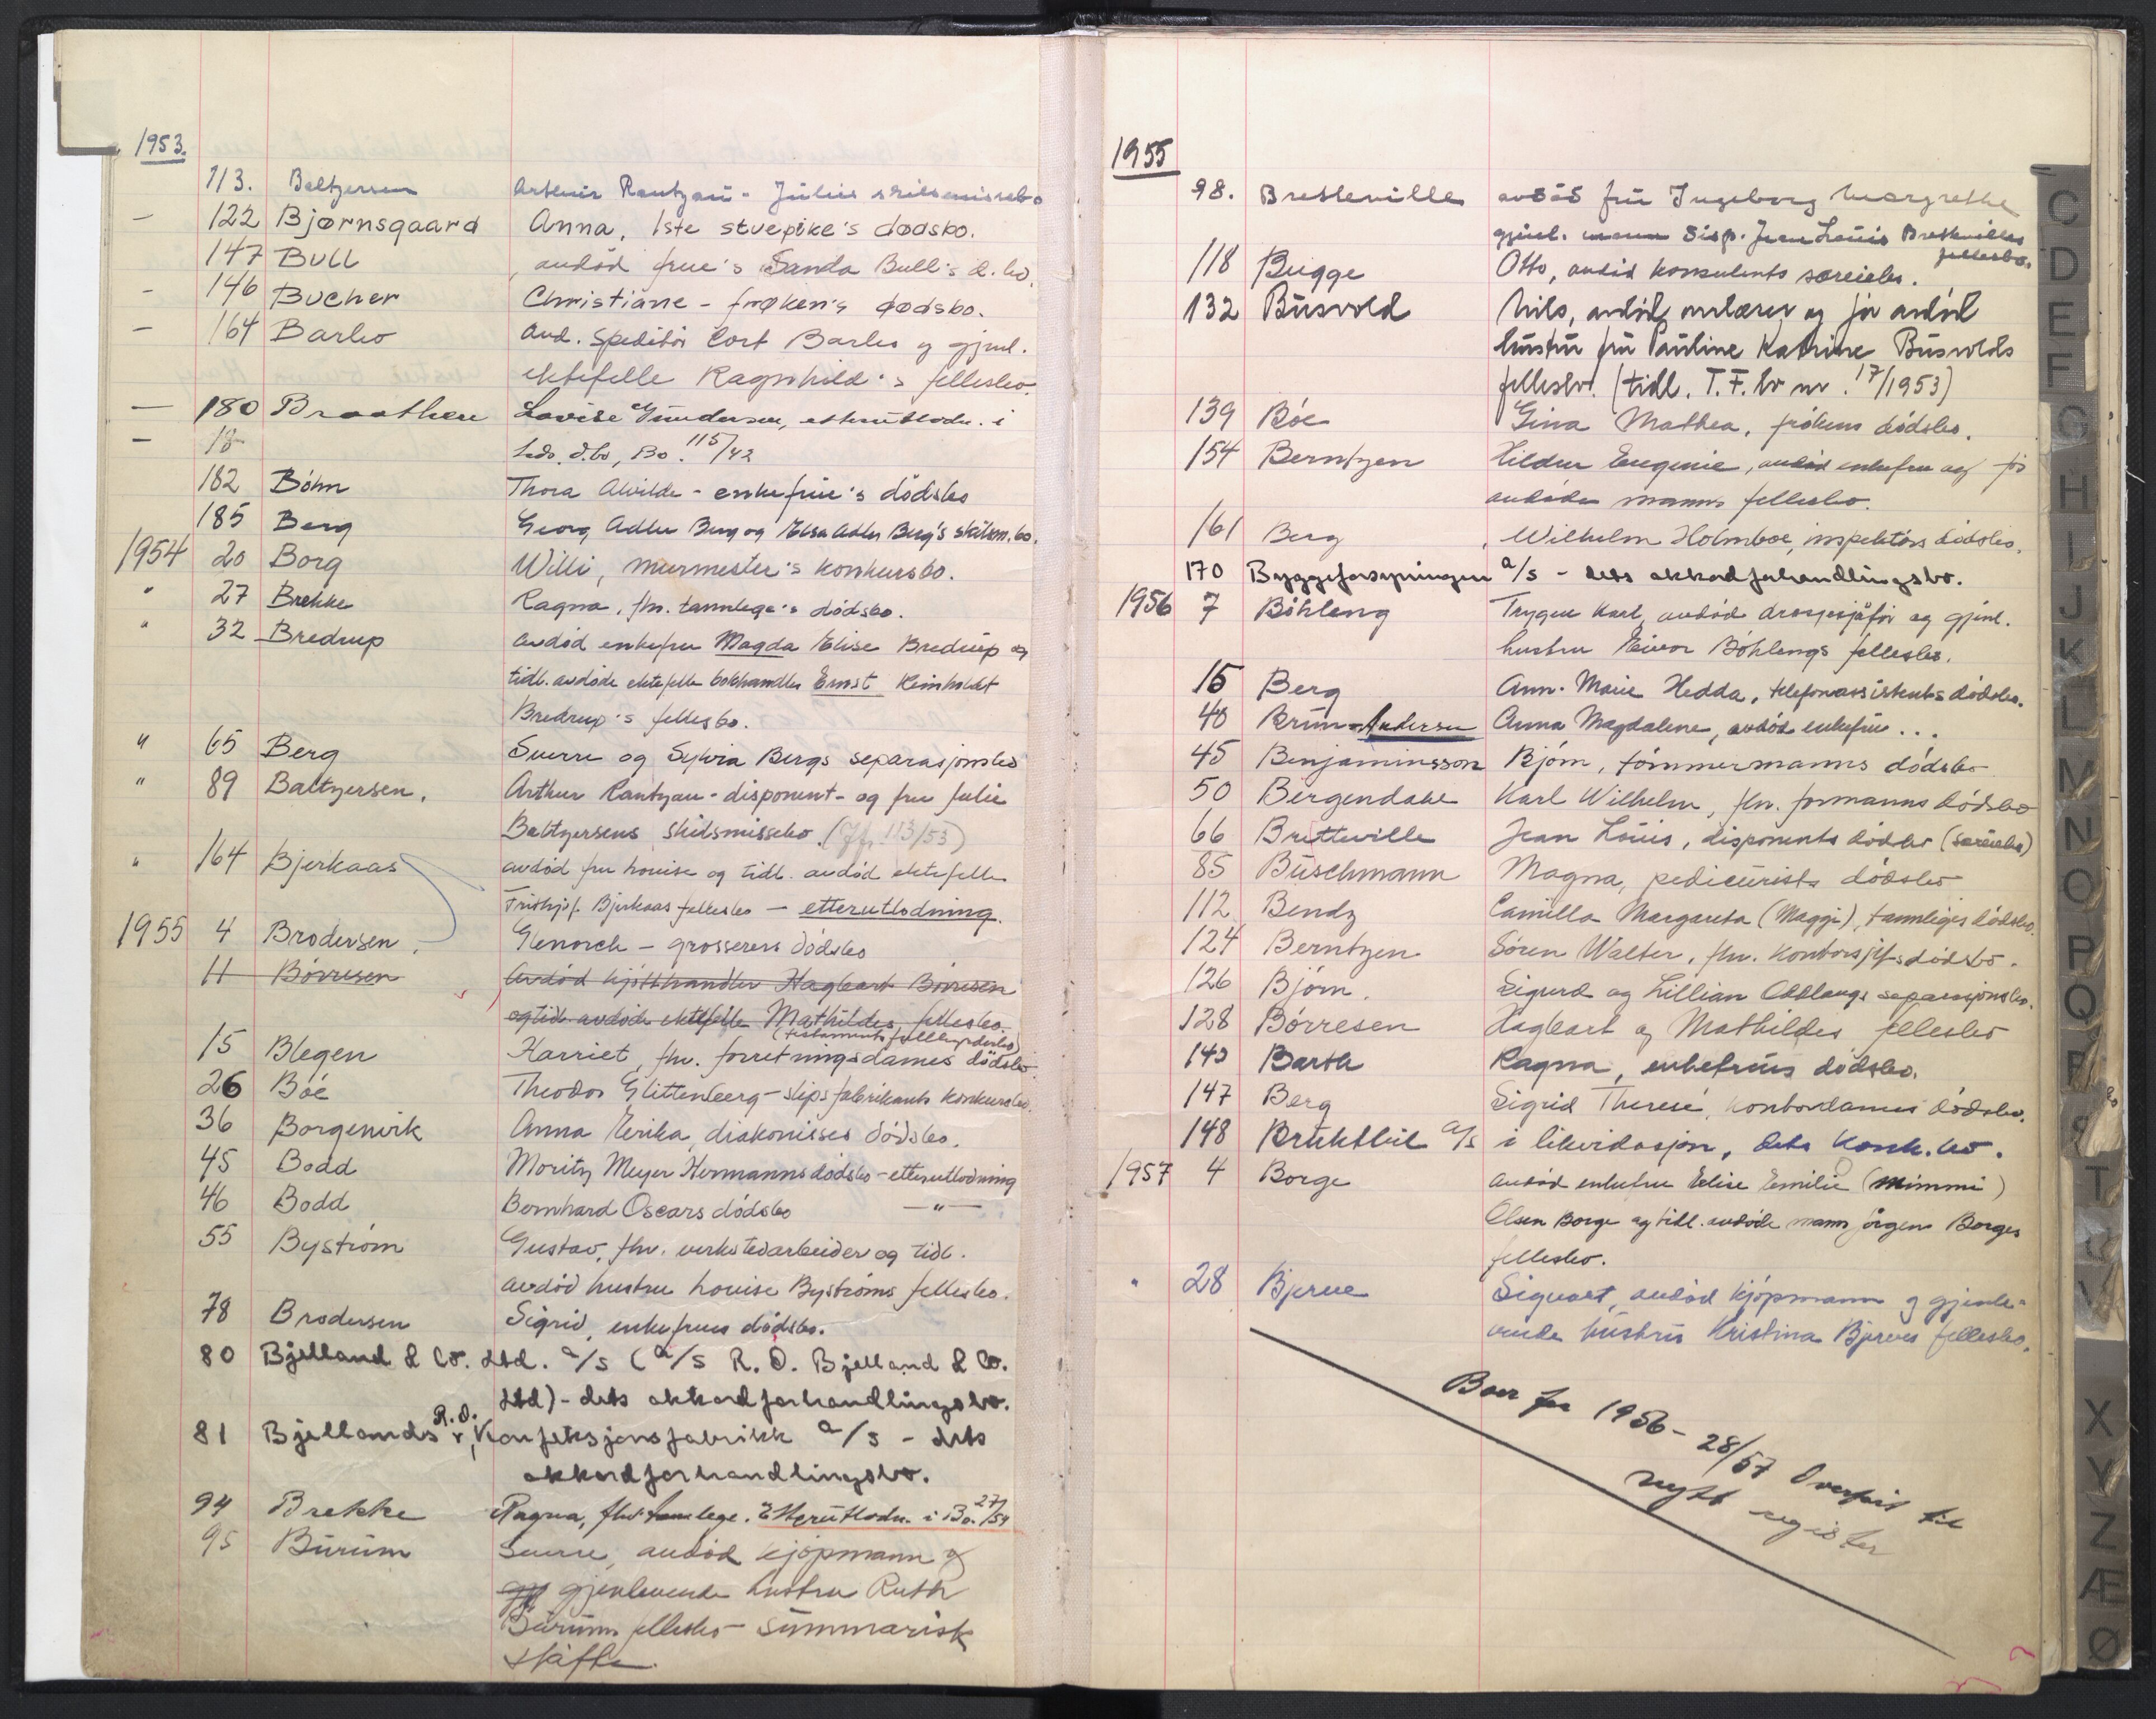 1953.
113. Baltzersen Arthur Rantzau - Julies skilsmissebo
— 122 Bjørnsgaard Anna, 1ste stuepike's dødsbo.
147 Bull avdød frue's Sanda Bull's d.bo.
— 146 Bucher Christiane - frøken's dødsbo.
— 164 Barbo Avd. speditør Cort Barbo og gjenl.
ektefelle Ragnhild's fellesbo.
— 180 Braathen Lovise Gundersen, etterutlodn. i
— 18
d.bo, Bo. 115/42
182 Böhn Thora Alvilde - enkefrue's dödsbo
185 Berg Georg Adler Berg og Elsa Adler Berg's skilsm.bo.
1954 20 Borg Willi, murmester's konkursbo.
" 27 Brekke Ragna, fhv. tannlege's dödsbo.
" 32 Bredrup avdöd enkefru Magda Elise Bredrup og
tidl. avdöde ektefelle bokhandler Ernst Reinholdt
Bredrup's fellesbo.
" 65 Berg Sverre og Sylvia Bergs separasjonsbo
" 89 Baltzersen. Arthur Rantzau - disponent - og fru Julie
Baltzersens skilsmissebo (Jfr. 113/53)
" 164 Bjerkaas avdöd fru Louise og tidl. avdöd ektefelle
Fridtjof Bjerkaas fellesbo — etterutlodning.
1955 4 Brodersen. Glenorck - grosserers dödsbo
11 Börresen Avdöd kjötthandler Hagbart Börresen
og tidl. avdöde ektefelle Mathildes fellesbo.
(testaments fullbyrdelsesbo)
15 Blegen Harriet, fhv. forretningsdames dödsbo.
26 Böe Theodor Glittenberg - slipsfabrikants konkursbo.
36 Borgenvik Anna Erika, diakonisses dödsbo.
45 Bodd Moritz Meyer Hermanns dödsbo - etterutlodning
46 Bodd Bernhard Oscars dödsbo —"—
55 Byström Gustav, fhv. verkstedarbeider og tidl.
avdöd hustru Louise Byströms fellesbo.
78 Brodersen Sigrid, enkefrues dödsbo.
80 Bjelland & Co. Ltd. a/s (a/s R. O. Bjelland & Co.
Ltd) - dets akkordforhandlingsbo.
81 Bjellands, R.O. Konfeksjonsfabrikk a/s - dets
akkordforhandlingsbo.
94 Brekke Ragna, fhv. tannlege. Etterutlodn. i Bo. 27/54
95 Burum Sverre, avdöd kjöpmann og
gjenlevende hustru Ruth
Burums fellesbo - summarisk
skifte.
1955
98. Bretteville avdöd fru Ingeborg Margrethe
gjenl. mann disp. Jean Louis Brettevilles
fellesbo.
118 Bugge Otto, avdöd konsulents særeiebo.
132 Busvold Nils, avdöd og før avdöd
hustru fru Pauline Katrine Busvolds
fellesbo. (tidl. T.F. bo nr. 17/1953)
139 Böe Gina Mathea, frökens dödsbo.
154 Berntzen Hildur Eugenie, avdöd enkefru og för
avdöde manns fellesbo.
161 Berg Wilhelm Holmboe, inspektörs dödsbo.
170 Byggeforsyningen a/s - dets akkordforhandlingsbo.
1956 7 Böhleng Trygve Karl, avdöd drosjesjåför og gjenl.
hustru Eivor Böhlengs fellesbo.
15 Berg Ann-Marie Hedda, telefonassistents dödsbo.
40 Brun-Andersen Anna Magdalene, avdöd enkefru ...
45 Benjaminsson Björn, tömmermanns dödsbo
50 Bergendahl Karl Wilhelm, fhv. formanns dödsbo
66 Bretteville Jean Louis, disponents dödsbo (særeiebo)
85 Buschmann Magna, pedicurists dödsbo
112 Bendz Camilla Margareta (Maggi), tannleges dödsbo.
124 Berntzen Sören Walter, fhv. kontorsjefs dödsbo.
126 Björn. Sigurd og Lillian Oddlaugs separasjonsbo.
128 Börresen Hagbart og Mathildes fellesbo
143 Barth Ragna, enkefrues dödsbo.
147 Berg Sigrid Therese, kontordames dödsbo.
148 Bruktbil a/s i likvidasjon, dets konk.bo.
1957 4 Borge avdöd enkefru Elise Emilie (Mimmi)
Olsen Borge og tidl. avdöde mann Jörgen Borges
fellesbo.
" 28 Bjerve Sigvart, avdöd kjöpmann og gjenle-
vende hustru Kristina Bjerves fellesbo.
Boer for 1956 - 28/57 overfört til
nytt register
C
D
E
F
G
H
I
J
K
L
M
N
O
P
Q
R
S
T
U
V
X
Y
Z
Æ
Ø